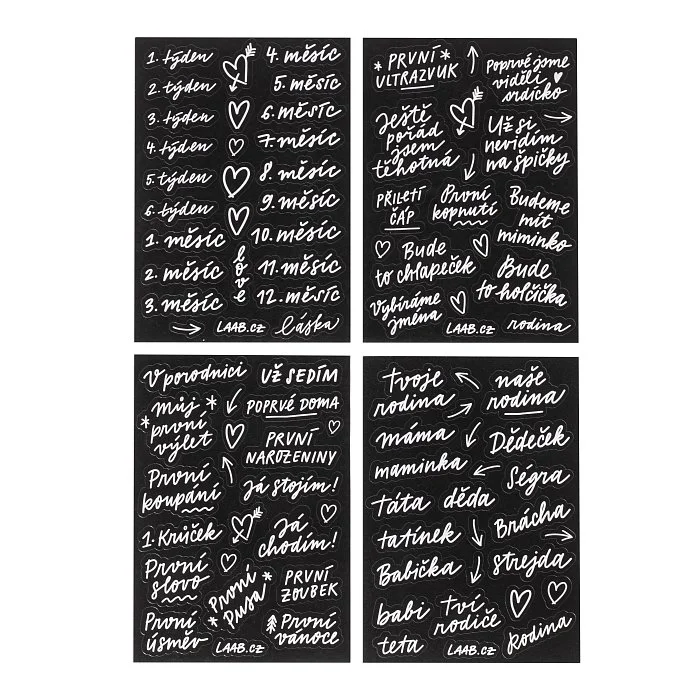 1. týden
2. týden
3. týden
4. týden
5. týden
6. týden
1. měsíc
2. měsíc
3. měsíc
4. měsíc
5. měsíc
6. měsíc
7. měsíc
8. měsíc
9. měsíc
10. měsíc
11. měsíc
12. měsíc
love
LAAB.cz
láska
PRVNÍ
ULTRAZVUK
Poprvé jsme
viděli
srdíčko
Ještě
pořád
jsem
těhotná
Už si
nevidím
na špičky
PŘILETÍ
ČÁP
První
kopnutí
Budeme
mít
miminko
Bude
to chlapeček
Bude
to holčička
Vybíráme
jména
LAAB.cz
rodina
V porodnici
UŽ SEDÍM
můj
první
výlet
POPRVÉ DOMA
PRVNÍ
NAROZENINY
První
koupání
Já stojím!
1. Krůček
Já
chodím!
První
slovo
První
Pusa
PRVNÍ
ZOUBEK
První
úsměv
První
vánoce
LAAB.cz
Tvoje
rodina
naše
rodina
máma
Dědeček
maminka
Ségra
táta
děda
Brácha
tatínek
Babička
strejda
babi
tvĺ
rodiče
teta
LAAB.cz
Rodina